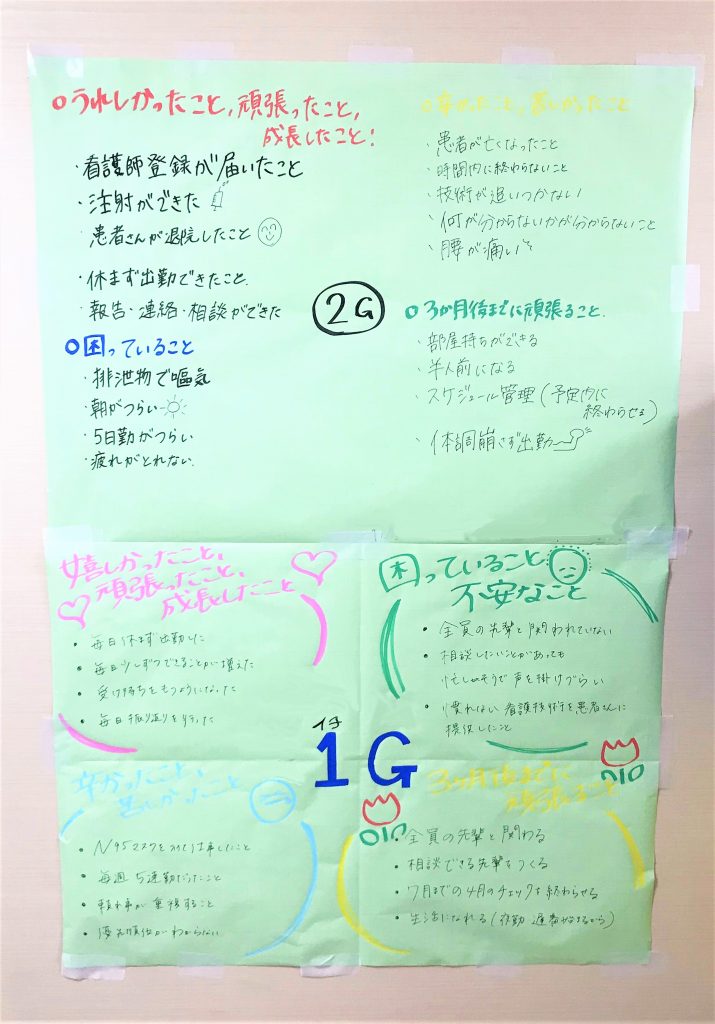 ○うれしかったこと,頑張ったこと,
成長したこと!
・看護師登録が届いたこと
・注射ができた
・患者さんが退院したこと
・休まず出勤できたこと.
・報告・連絡・相談ができた
○困っていること
・排泄物で嘔気
・朝がつらい
・5日勤がつらい
・疲れがとれない.
○辛かったこと,苦しかったこと
・患者が亡くなったこと
・時間内に終わらないこと
・技術が追いつかない
・何が分からないかが分からないこと
・腰が痛い
2G
○3か月後までに頑張ること.
・部屋持ちができる
・半人前になる
・スケジュール管理(予定内に
終わらせる)
・体調崩さず出勤
嬉しかったこと、
頑張ったこと、
成長したこと
・毎日休まず出勤した
・毎日少しずつできることが増えた
・受け持ちをもつようになった
・毎日振り返りを行った
困っていること
不安なこと
・全員の先輩と関われていない
・相談したいことがあっても
忙しいそうで声を掛けづらい
・慣れない看護技術を患者さんに
提供したこと
イチ
1G
辛かったこと、
苦しかったこと
・N95マスクをつけて仕事したこと
・毎週5連勤だったこと
・頼まれ事が重複すること
・優先順位がわからない
3ヶ月後までに
頑張ること
・全員の先輩と関わる
・相談できる先輩をつくる
・7月までの4月のチェックを終わらせる
・生活になれる(夜勤 遅番が始まるから)